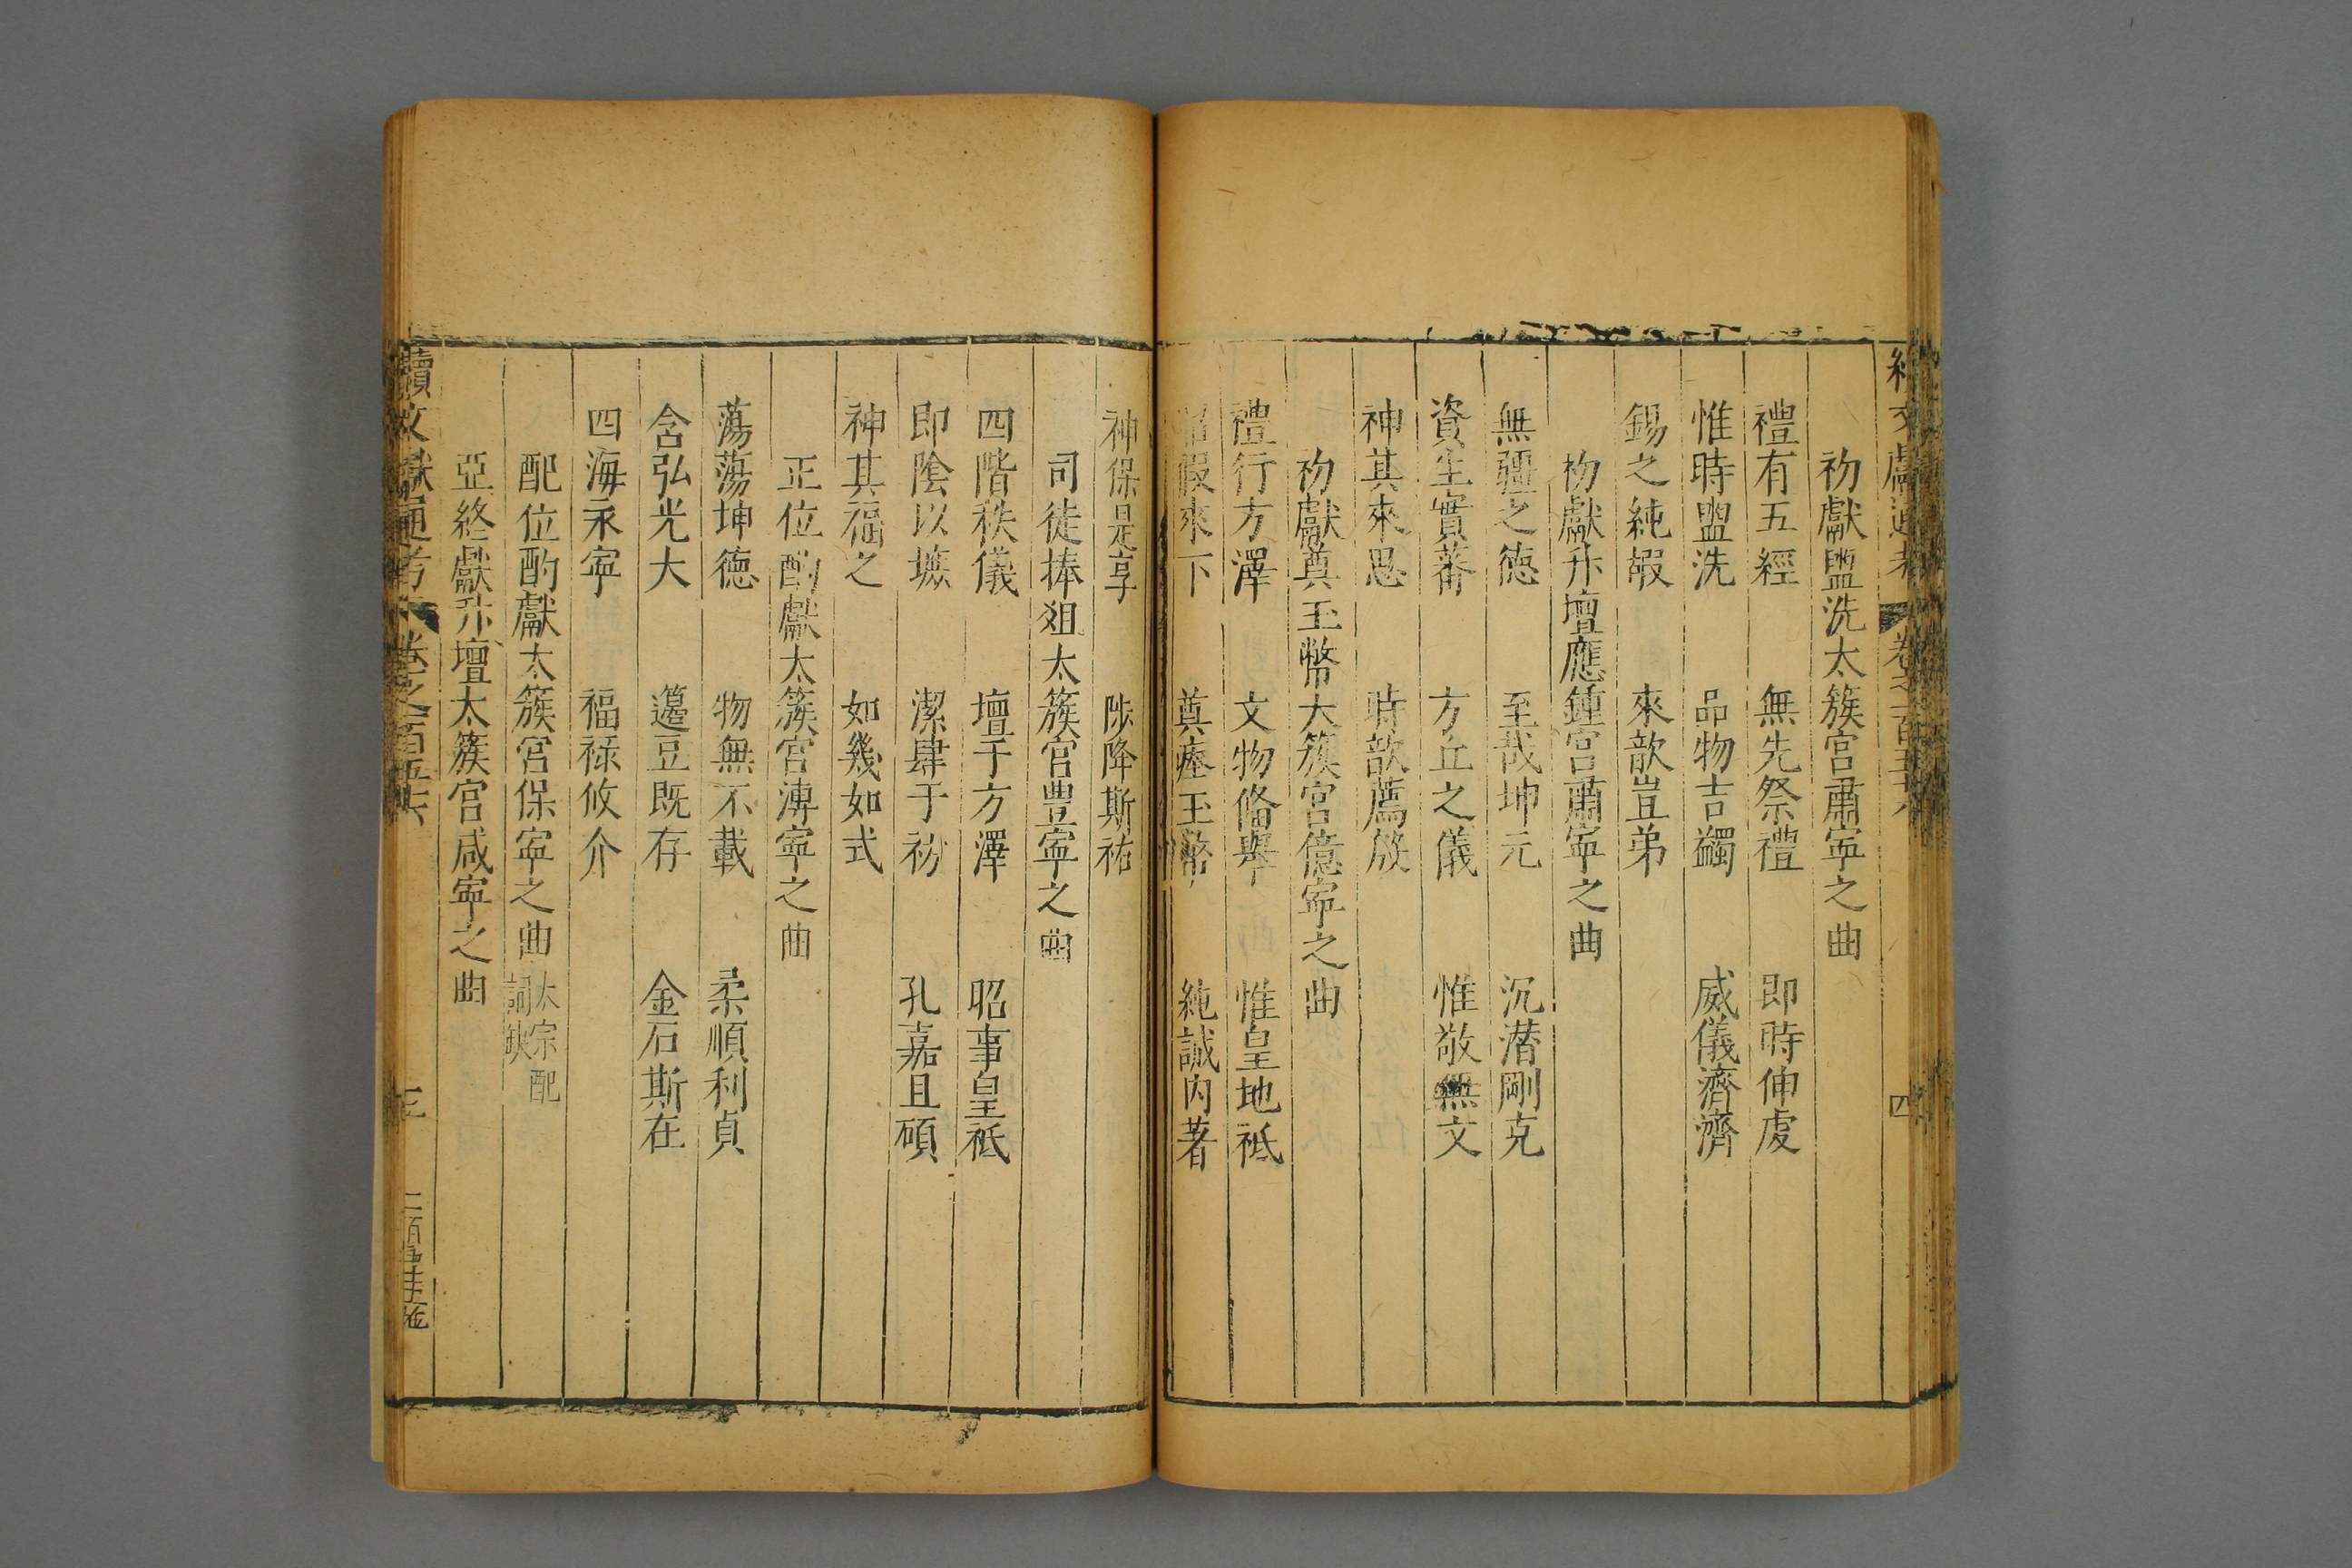 文獻通考 卷之一百五十六 四
初獻盥洗太簇宮肅寧之曲
禮有五經 無先祭禮 即時伸虔
惟時盥洗 品物吉蠲 威儀濟濟
錫之純嘏 來歆豈弟
初獻升壇應鍾宮肅寧之曲
無疆之德 至哉坤元 沉潜剛克
資生實蕃 方丘之儀 惟敬無文
神其來思 時歆薦殷
初獻奠玉幣太簇宮億寧之曲
禮行方澤 文物偹舉 惟皇地祗
昭假來下 奠瘞玉幣 純誠内著
神保是享 陟降斯祐
司徒捧俎太簇宮豊寧之曲
四階秩儀 壇于方澤 昭事皇祗
即陰以墌 潔肆于祊 孔嘉且碩
神其福之 如幾如式
正位酌獻太簇宮溥寧之曲
蕩蕩坤德 物無不載 柔順利貞
含弘光大 籩豆既存 金石斯在
四海永寧 福禄攸介
配位酌獻太簇宮保寧之曲 太宗配詞缺
亞終獻升壇太簇宮咸寧之曲
續文獻通考 卷之一百五十六 三